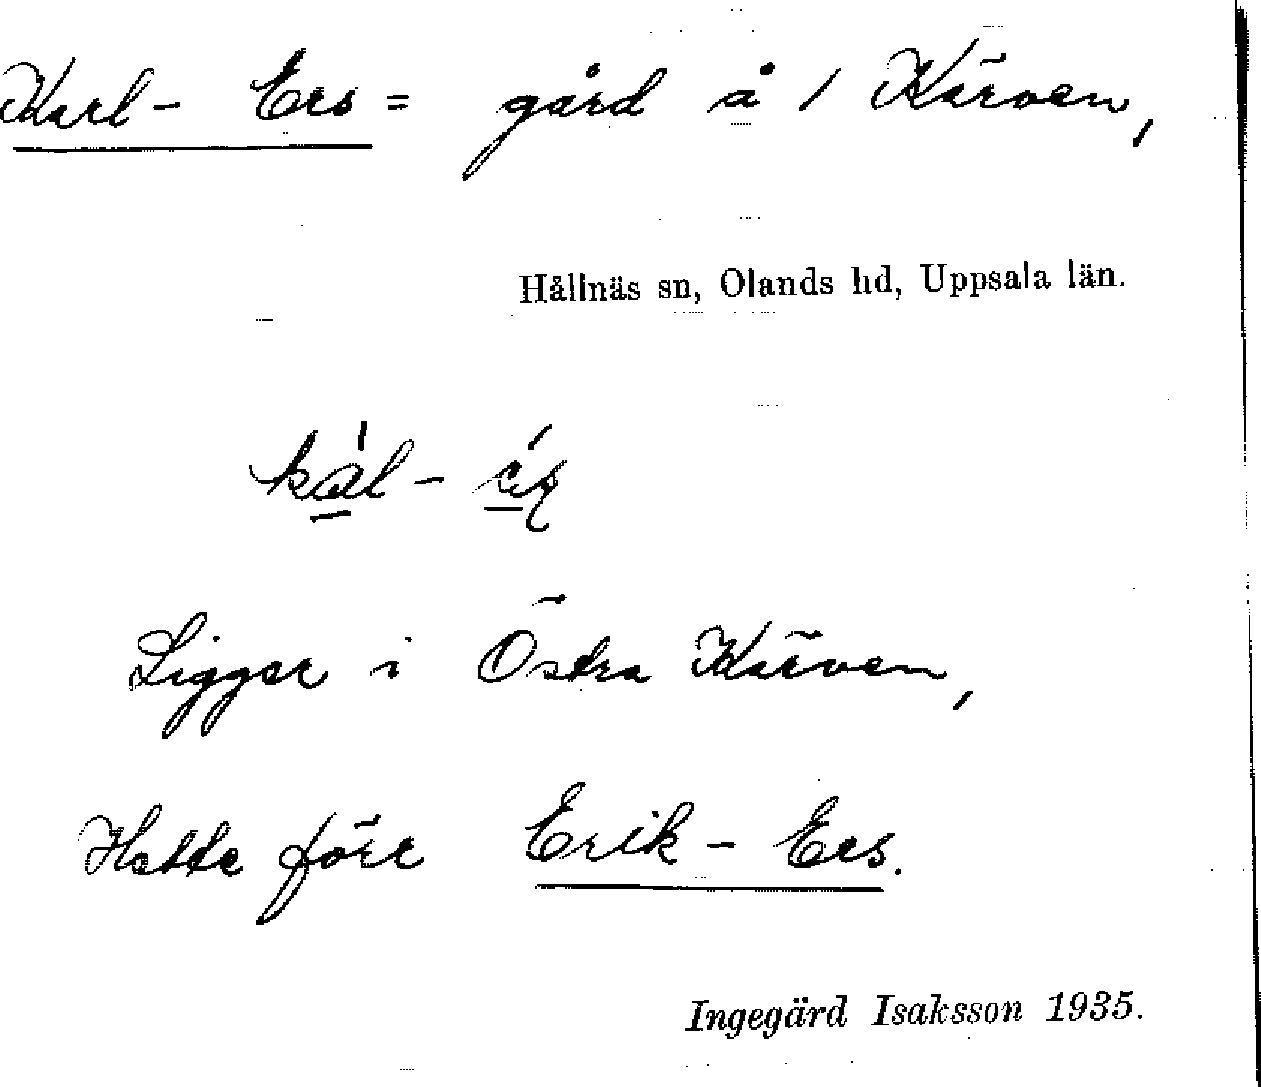 Karl-Ers = gård å 1 Kärven,
Hållnäs sn, Olands hd, Uppsala län.
kál-
Ligger i Östra Kärven,
Hette förr Erik-Ers.
Ingegärd Isaksson 1935.